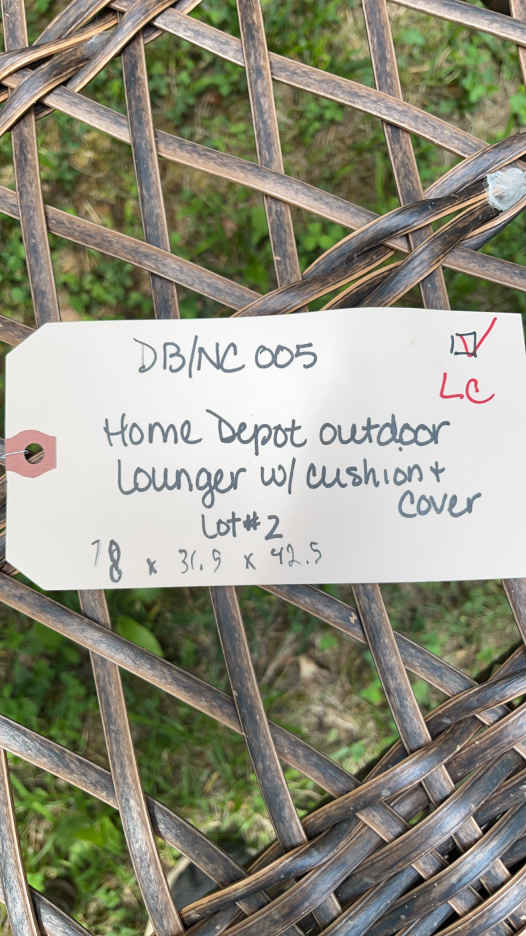 DB/NC 005
LC
Home Depot outdoor
Lounger w/ cushion +
cover
Lot #2
78 x 31.5 x 42.5